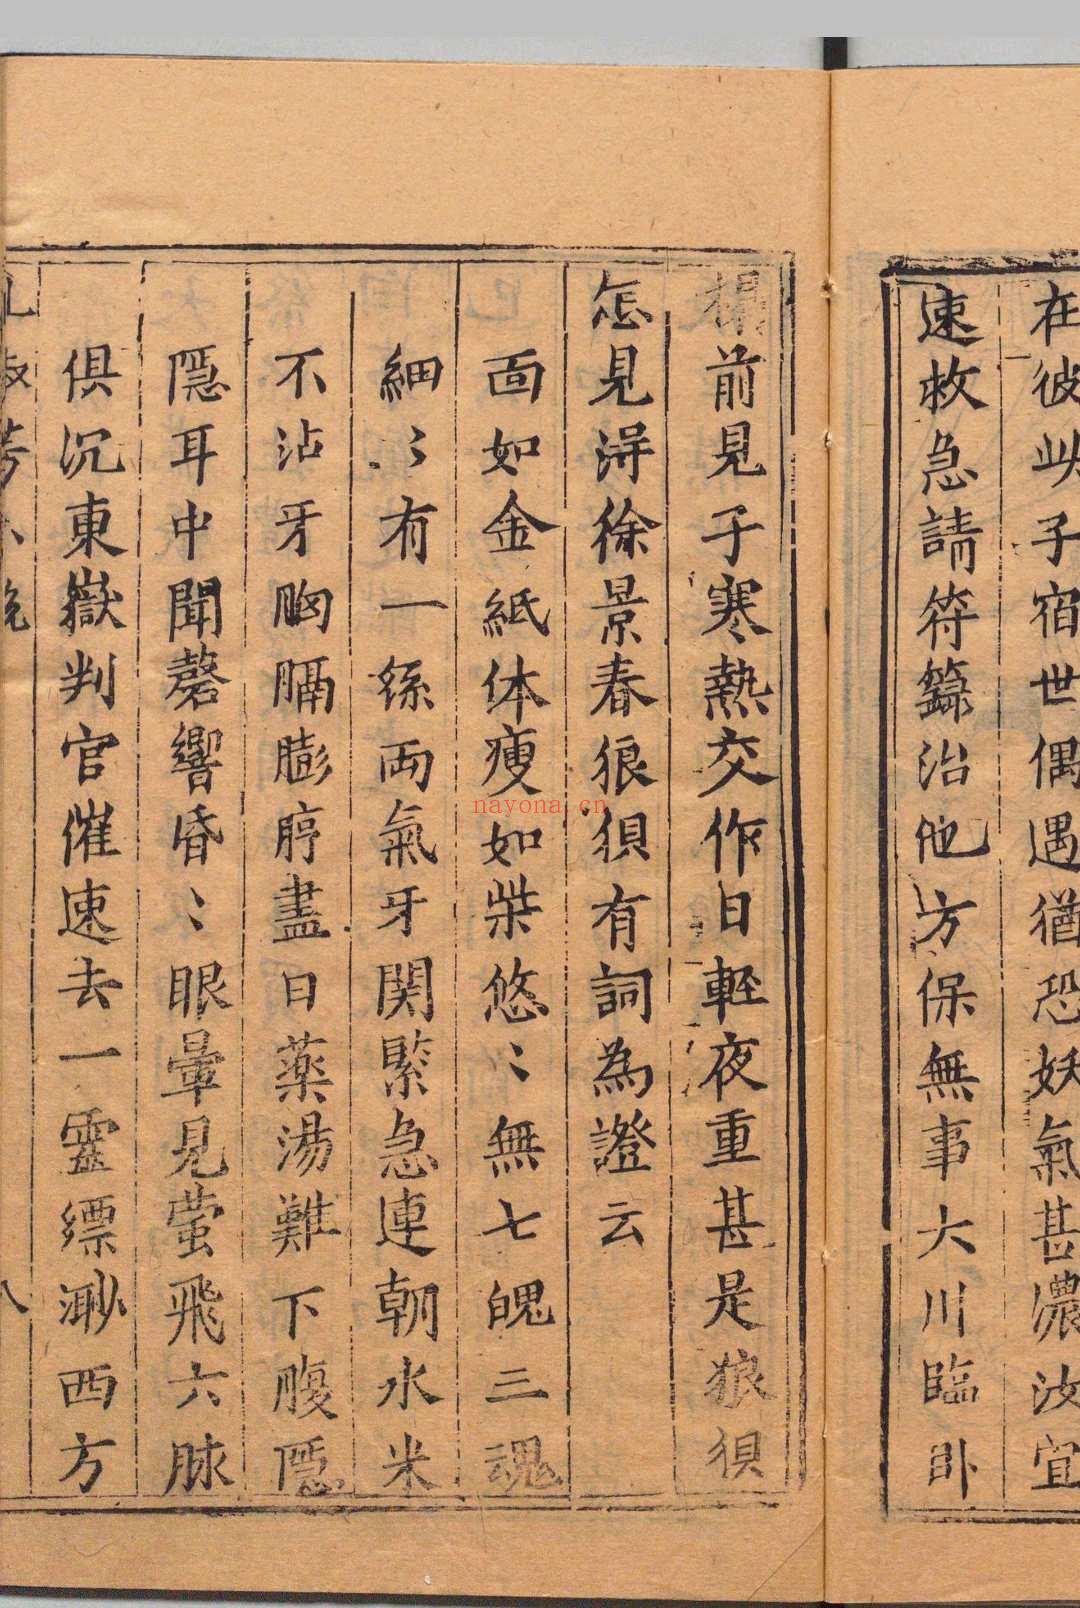 在彼此子宿世偶遇猶恐妖氣甚濃汝宜
速救急請符籙治他方保無事大川臨卧
榻前見子寒熱交作日輊夜重甚是狼狽
怎見淂徐景春狼狽有詞為證云
靣如金紙体瘦如柴悠〻無七魄三魂
細〻有一絲両氣牙関緊急連朝水米
不沾牙胸膈膨脝盡日薬湯難下腹隱
隱耳中聞磬響昏〻眼暈見螢飛六脉
俱沉東嶽判官催速去一靈縹渺西方
nayona.cn
八